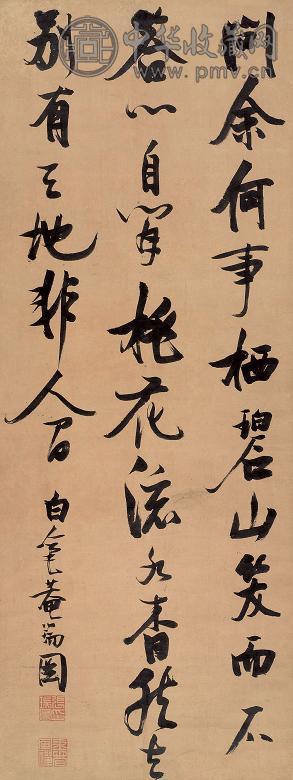 問余何事栖碧山笑而不
答心自閒桃花流水杳然去
別有天地非人間 白毫菴瑞圖
中华收藏网
www.pmv.cn